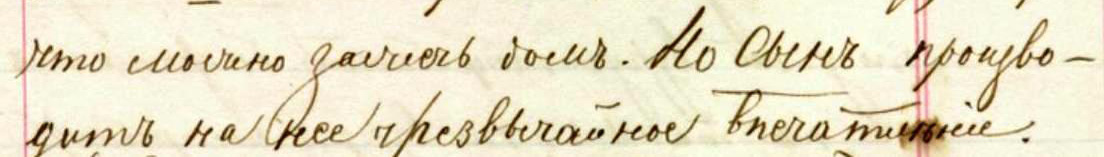 что можно зажечь домъ. Но Сынъ произво-
дитъ на нее чрезвычайное впечатленіе.